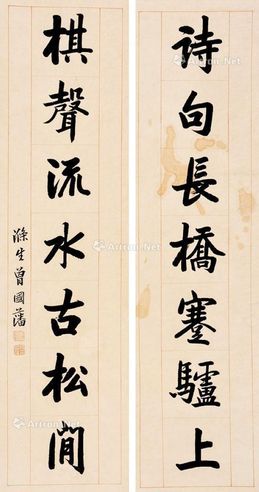 詩句長橋蹇驢上
棋聲流水古松間
滌生曾國藩
Artron.Net
Artron.Net
Artron.Net
Artron.Net